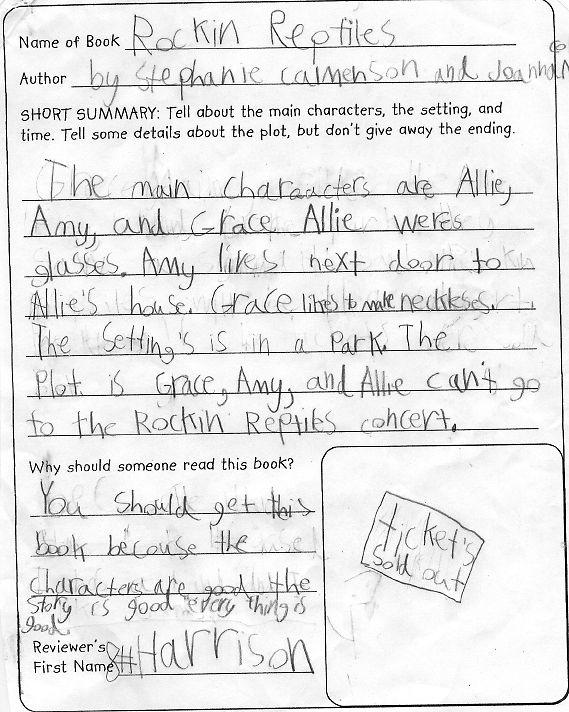 Name of Book Rockin Reptiles
Author by Stephanie Calmenson and Joanna
SHORT SUMMARY: Tell about the main characters, the setting, and
time. Tell some details about the plot, but don't give away the ending.
The main charaacters are Allie,
Amy, and Grace. Allie weres
glasses. Amy lives next door to
Allie's house. Grace likes to make neckleses.
The Setting's is in a Park. The
Plot is Grace, Amy, and Allie can't go
to the Rockin Reptiles concert.
Why should someone read this book?
You should get this
book becouse the
characters are good the
story is good every thing is
good.
ticket's
sold out
Reviewer's
First Name Harrison